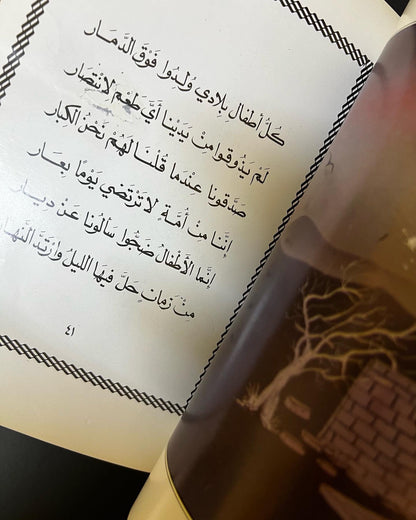 كُلُّ أَطفالِ بِلادي وُلِدُوا فَوْقَ الدَّمَار
لَمْ يَذُوقوا مِنْ يَدَيْنا أَيَّ طَعْمٍ لِانْتِصَار
صَدَّقونا عِنْدَما قُلْنا لَهُمْ نَحْنُ الكِبار
إِنَّنا مِنْ أُمَّةٍ لا تَرْتَضي يَوْمًا بِعَار
إِنَّما الأَطْفالُ ضَجُّوا سَأَلُونا عَنْ دِيار
مِنْ زَمانٍ حَلَّ فيها الليلُ وارْتَدَّ النَّهار
٤١